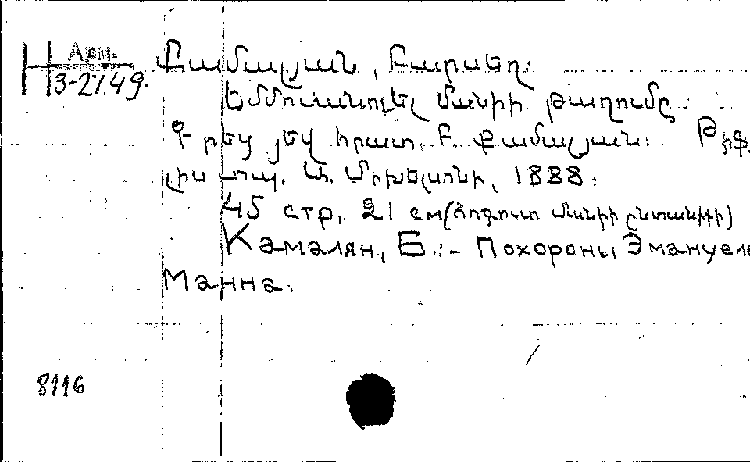 Арм.
3-2749.
Քամալյան, Բարսեղ.
Եմմանուել Մաննի թաղումը.
Գրեց յեվ հրատ. Բ. Քամալյան. Թիֆ
լիս տպ. Մ. 1888.
45 стр. 21 см (հոգուտ Մաննի ընտանիքի)
Камалян, Б. :- Похороны Эмануела
Манна.
8116